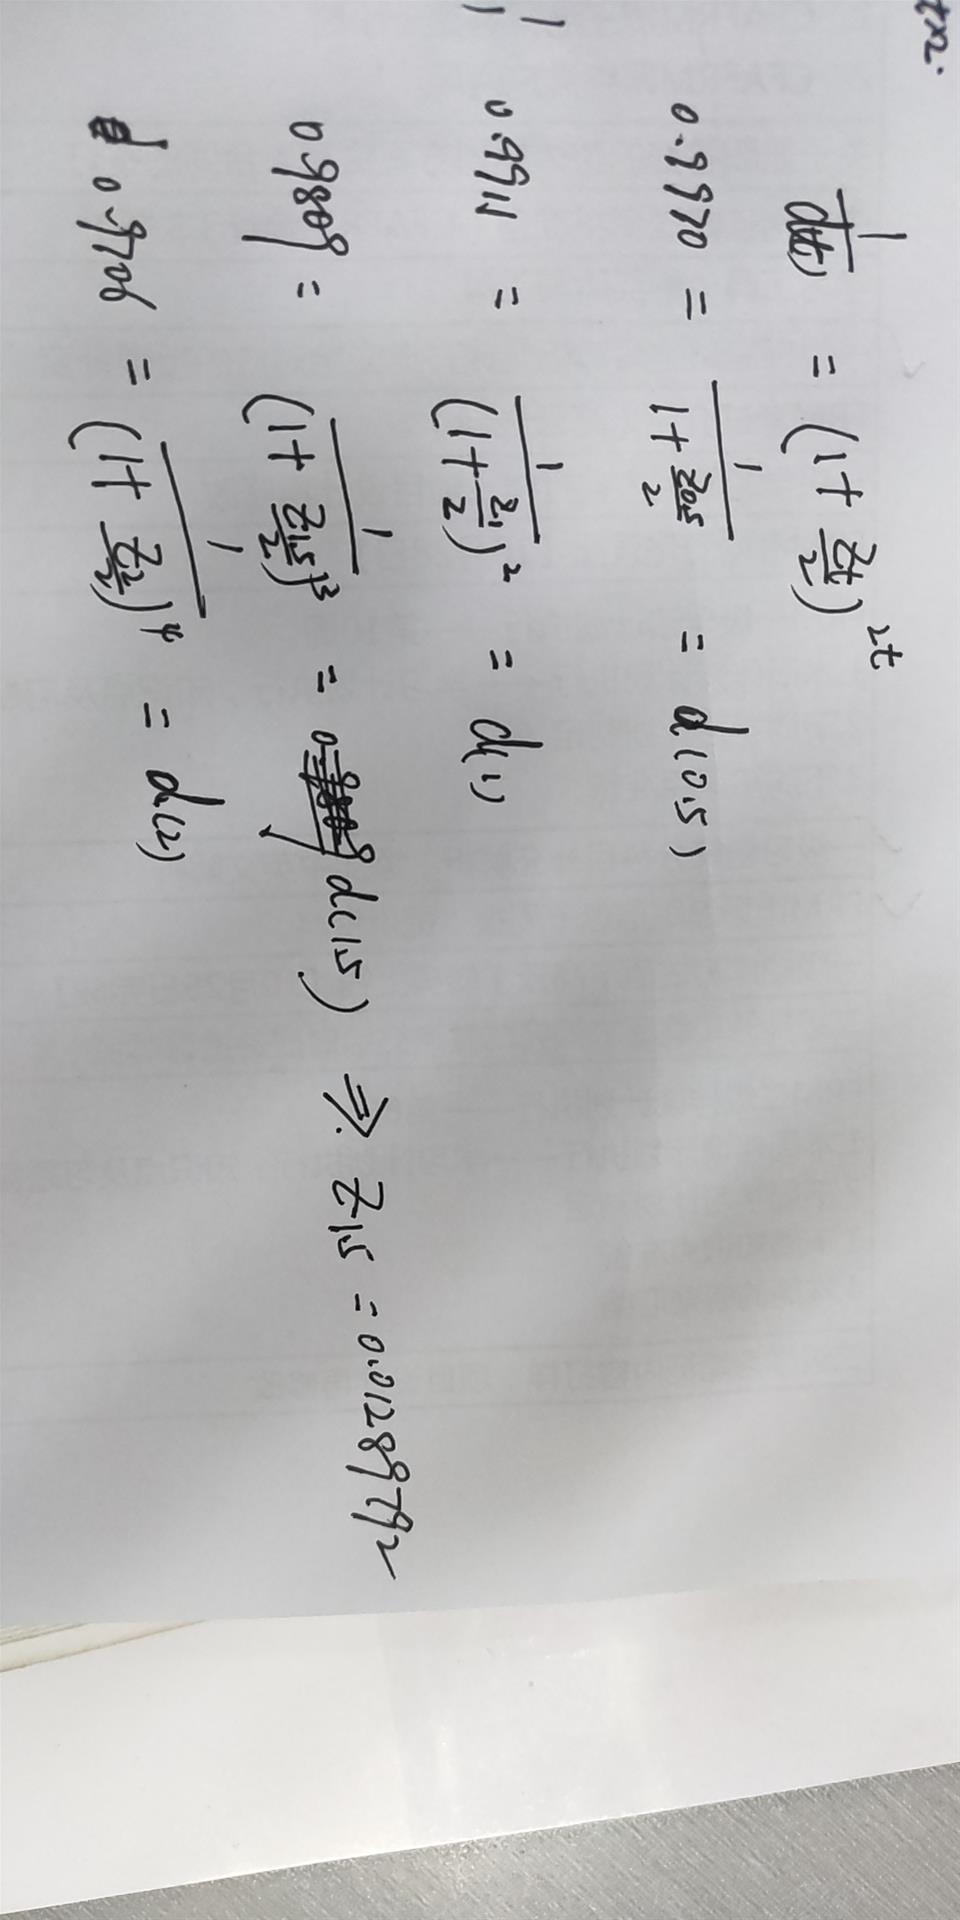 tx2.
1/d(t) = (1 + Zt/2)^2t
0.9970 = 1/(1 + Z0.5/2) = d(0.5)
0.9911 = 1/(1 + Z1/2)^2 = d(1)
0.9809 = 1/(1 + Z1.5/2)^3 = d(1.5) ⇒ Z1.5 = 0.01289792
0.9706 = 1/(1 + Z2/2)^4 = d(2)